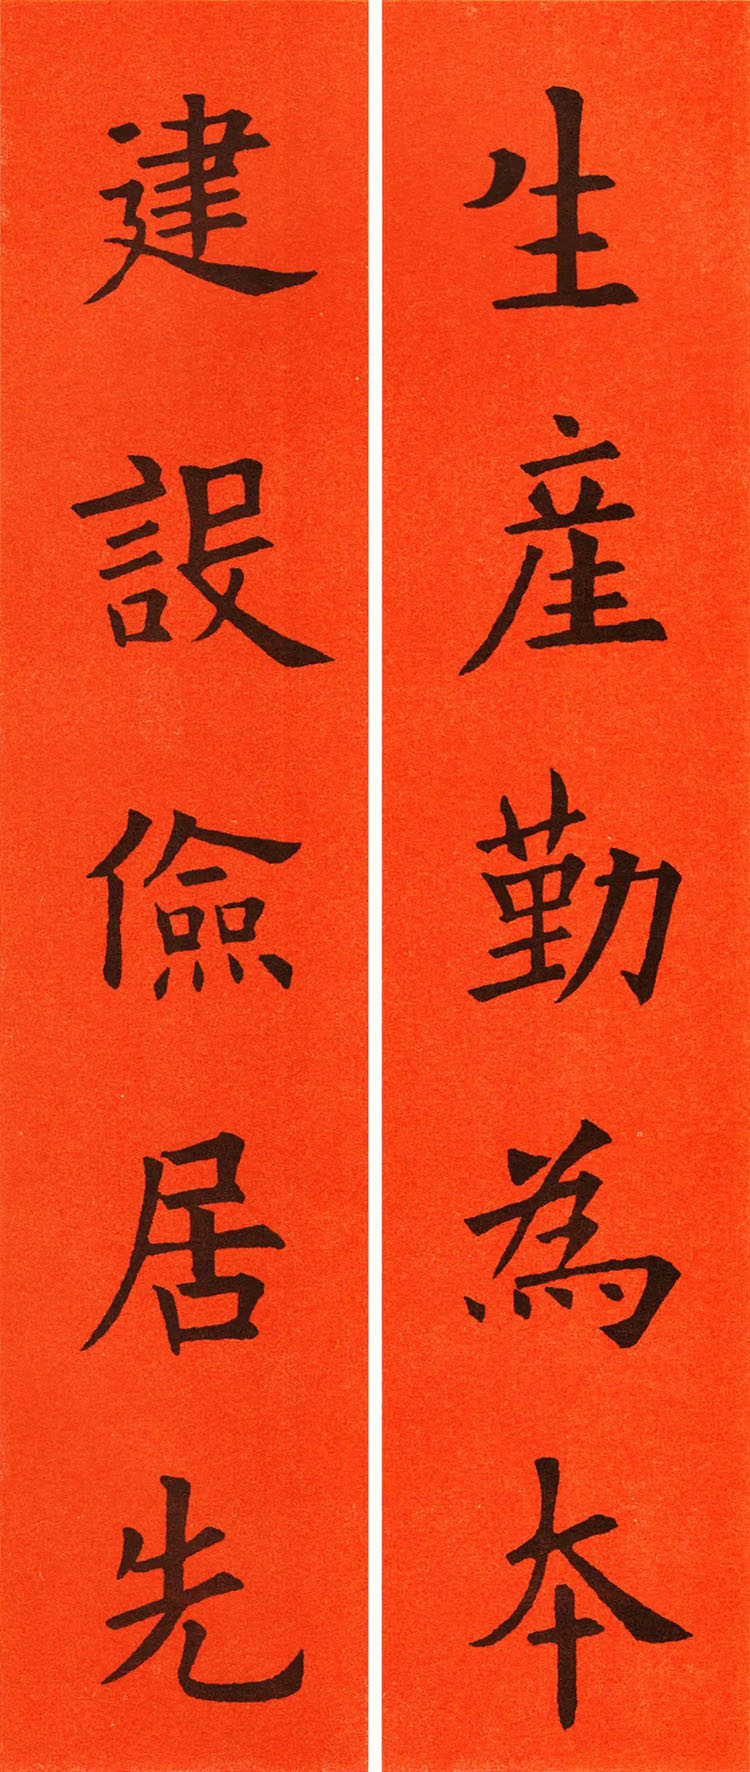 生產勤為本
建設儉居先